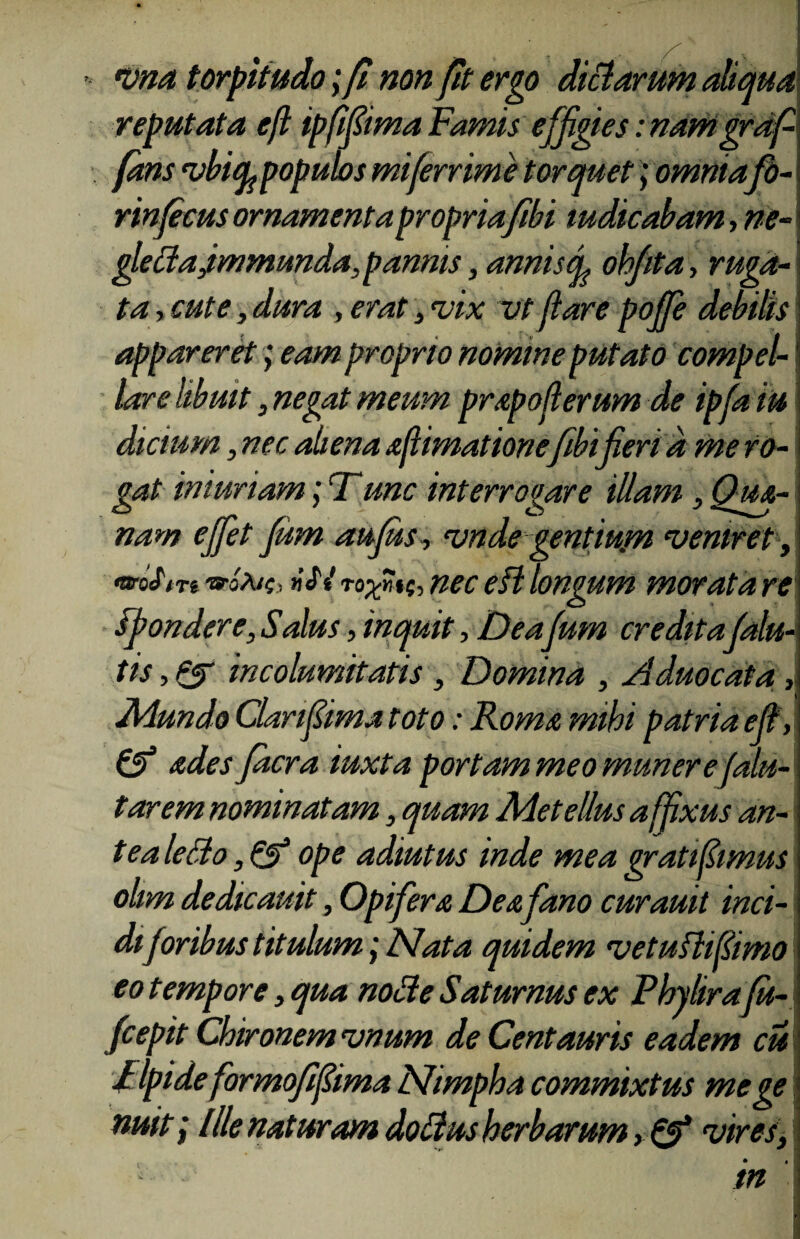 vna torpitudo; ſi non ſit ergo dictarum aliqua
reputata eſt ipſiſſima Famis effigies: nam graſ-
ſans vbiq; populos miſerrimè torquet; omnia fo-
rinſecus ornamenta propria ſibi iudicabam, ne-
glecta, immunda, pannis, annisq; obſita, ruga-
ta, cute, dura, erat, vix vt ſtare poſſe debilis
appareret; eam proprio nomine putato compel-
lare libuit, negat meum præpoſterum de ipſa iu
dicium, nec aliena æſtimatione ſibi fieri à me ro-
gat iniuriam; Tunc interrogare illam, Quæ-
nam eſſet ſum auſus, vnde gentium veniret,
πόθι τι πόλις, ἠδὲ τοχῆες, nec eſt longum morata re
ſpondere, Salus, inquit, Dea ſum credita ſalu-
tis, & incolumitatis, Domina, Aduocata,
Mundo Clariſſima toto: Roma mihi patria eſt,
& ædes ſacra iuxta portam meo munere ſalu-
tarem nominatam, quam Metellus affixus an-
tea lecto, & ope adiutus inde mea gratiſſimus
olim dedicauit, Opiferæ Deæ fano curauit inci-
di foribus titulum; Nata quidem vetuſtiſſimo
eo tempore, qua nocte Saturnus ex Phylira ſu-
ſcepit Chironem vnum de Centauris eadem cū
Elpide formoſiſſima Nimpha commixtus me ge
nuit; Ille naturam doctus herbarum, & vires,
in